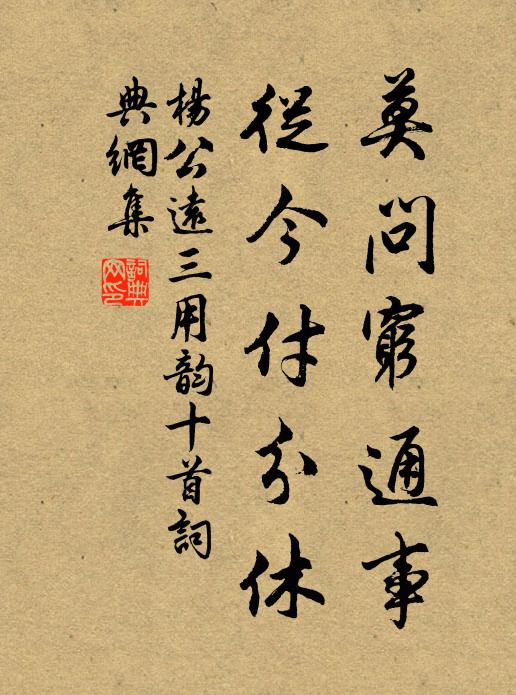 莫問窮通事
從今付分休
楊公遠三用韵十首詞
典網集
詞典
网印